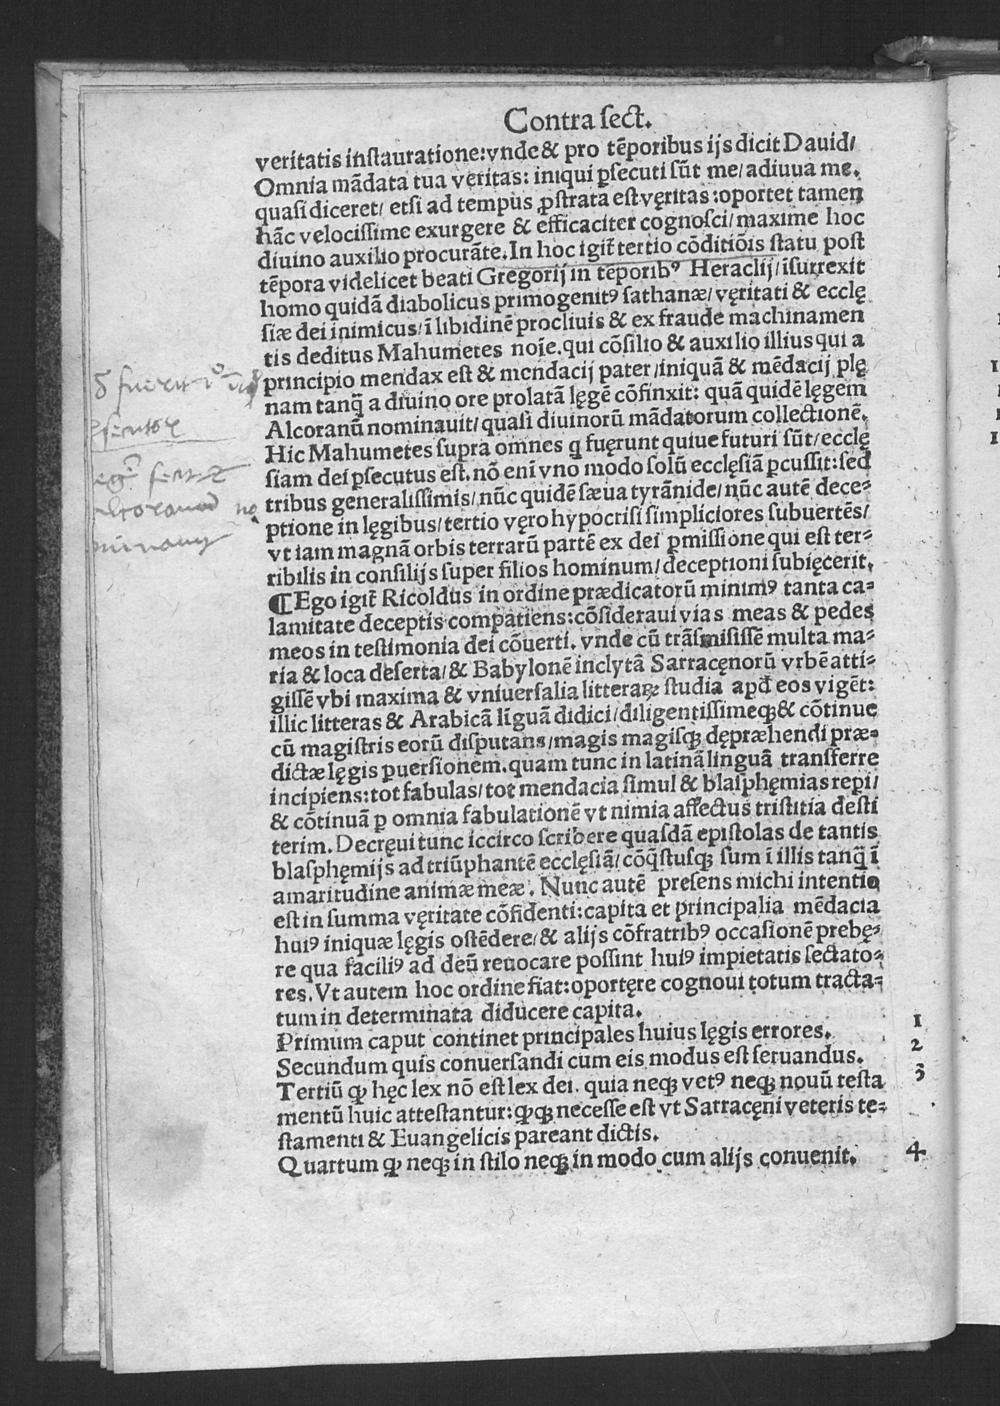 Contra sect.
veritatis instauratione: vnde & pro tẽporibus ijs dicit Dauid/
Omnia mãdata tua veritas: iniqui ꝑsecuti sũt me/ adiuua me.
quasi diceret/ etsi ad tempus ꝓstrata est vęritas: oportet tamen
hãc velocissime exurgere & efficaciter cognosci/ maxime hoc
diuino auxilio procurãte. In hoc igit̃ tertio cõditiõis statu post
tẽpora videlicet beati Gregorij in tẽporibꝰ Heraclij/ ĩsurrexit
homo quidã diabolicus primogenitꝰ sathanæ/ vęritati & ecclę
siæ dei inimicus/ ĩ libidinẽ procliuis & ex fraude machinamen
tis deditus Mahumetes noĩe. qui cõsilio & auxilio illius qui a
principio mendax est & mendacij pater/ iniquã & mẽdacij plę
nam tanq̃ a diuino ore prolatã lęgẽ cõfinxit: quã quidẽ lęgem
Alcoranũ nominauit/ quasi diuinorũ mãdatorum collectionẽ.
Hic Mahumetes supra omnes q̃ fuęrunt quiue futuri sũt/ ecclę
siam dei ꝑsecutus est. nõ enĩ vno modo solũ ecclęsiã ꝑcussit: sed
tribus generalissimis/ nũc quidẽ sæua tyrãnide/ nũc autẽ dece⸗
ptione in lęgibus/ tertio vęro hypocrisi simpliciores subuertẽs/
vt iam magnã orbis terrarũ partẽ ex dei ꝑmissione qui est ter⸗
ribilis in consilijs super filios hominum/ deceptioni subięcerit.
¶ Ego igit̃ Ricoldus in ordine prædicatorũ minimꝰ tanta ca⸗
lamitate deceptis compatiens: cõsideraui vias meas & pedes
meos in testimonia dei cõuerti. vnde cũ trãsmisissẽ multa ma⸗
ria & loca deserta/ & Babylonẽ inclytã Sarracęnorũ vrbẽ atti⸗
gissẽ vbi maxima & vniuersalia litteraꝝ studia apd̃ eos vigẽt:
illic litteras & Arabicã lĩguã didici/ diligentissimeqꝫ & cõtinue
cũ magistris eorũ disputans/ magis magisqꝫ dępræhendi præ⸗
dictæ lęgis ꝑuersionem. quam tunc in latinã linguã transferre
incipiens: tot fabulas/ tot mendacia simul & blasphęmias repi/
& cõtinuã ꝑ omnia fabulationẽ vt nimia affectus tristitia desti
terim. Decręui tunc iccirco scribere quasdã epistolas de tantis
blasphęmijs ad triũphantẽ ecclęsiã/ cõq̃stusqꝫ sum ĩ illis tanq̃ ĩ
amaritudine animæ meæ. Nunc autẽ presens michi intentio
est in summa vęritate cõfidenti: capita et principalia mẽdacia
huiꝰ iniquæ lęgis ostẽdere/ & alijs cõfratribꝰ occasionẽ prebę⸗
re qua faciliꝰ ad deũ reuocare possint huiꝰ impietatis sectato⸗
res. Vt autem hoc ordine fiat: oportęre cognoui totum tracta⸗
tum in determinata diducere capita.
Primum caput continet principales huius lęgis errores. 1
Secundum quis conuersandi cum eis modus est seruandus. 2
Tertiũ ꝙ hęc lex nõ est lex dei. quia neqꝫ vetꝰ neqꝫ nouũ testa 3
mentũ huic attestantur: ꝙqꝫ necesse est vt Sarracęni veteris te⸗
stamenti & Euangelicis pareant dictis.
Quartum ꝙ neqꝫ in stilo neqꝫ in modo cum alijs conuenit. 4